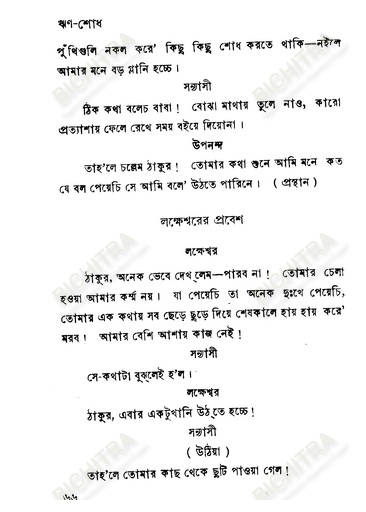 ঋণ-শোধ
পুঁথিগুলি নকল করে’ কিছু কিছু শোধ করতে থাকি—নইলে
আমার মনে বড় গ্লানি হচ্চে।
সন্ন্যাসী
ঠিক কথা বলেচ বাবা! বোঝা মাথায় তুলে নাও, কারো
প্রত্যাশায় ফেলে রেখে সময় বইয়ে দিয়োনা।
উপনন্দ
তাহ’লে চল্লেম ঠাকুর! তোমার কথা শুনে আমি মনে কত
যে বল পেয়েচি সে আমি বলে’ উঠতে পারিনে। (প্রস্থান)
লক্ষেশ্বরের প্রবেশ
লক্ষেশ্বর
ঠাকুর, অনেক ভেবে দেখ্‌লেম—পারব না! তোমার চেলা
হওয়া আমার কর্ম্ম নয়। যা পেয়েচি তা অনেক দুঃখে পেয়েচি,
তোমার এক কথায় সব ছেড়ে ছুড়ে দিয়ে শেষকালে হায় হায় করে’
মরব! আমার বেশি আশায় কাজ নেই!
সন্ন্যাসী
সে-কথাটা বুঝ্‌লেই হ’ল।
লক্ষেশ্বর
ঠাকুর, এবার একটুখানি উঠ্‌তে হচ্চে!
সন্ন্যাসী
(উঠিয়া)
তাহ’লে তোমার কাছ থেকে ছুটি পাওয়া গেল!
৬৬
BICHITRA
BICHITRA
BICHITRA
BICHITRA
BICHITRA
BICHITRA